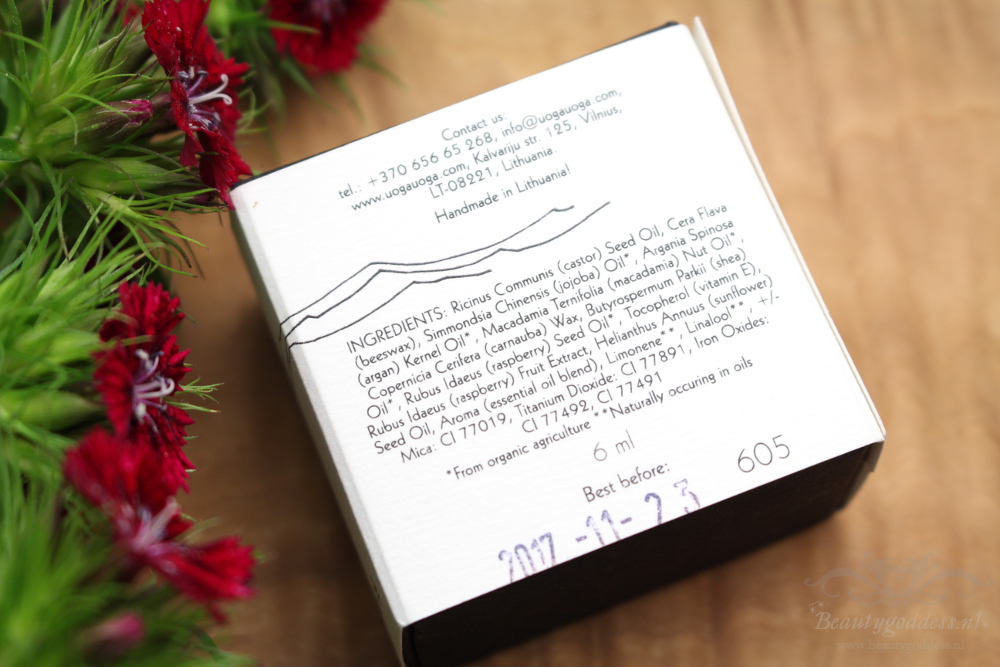 Contact us:
tel.: +370 656 65 268, info@uogauoga.com,
www.uogauoga.com, Kalvariju str. 125, Vilnius,
LT-08221, Lithuania.
Handmade in Lithuania!
INGREDIENTS: Ricinus Communis (castor) Seed Oil, Cera Flava
(beeswax), Simmondsia Chinensis (jojoba) Oil*, Argania Spinosa
(argan) Kernel Oil*, Macadamia Ternifolia (macadamia) Nut Oil*,
Copernicia Cerifera (carnauba) Wax, Butyrospermum Parkii (shea)
Oil*, Rubus Idaeus (raspberry) Seed Oil*, Tocopherol (vitamin E),
Rubus Idaeus (raspberry) Fruit Extract, Helianthus Annuus (sunflower)
Seed Oil, Aroma (essential oil blend), Limonene**, Linalool**, +/-
Mica: CI 77019, Titanium Dioxide: CI 77891, Iron Oxides:
CI 77492, CI 77491
*From organic agriculture **Naturally occuring in oils
6 ml
Best before:
605
2017-11-23
Beautygoddess.nl
www.beautygoddess.nl